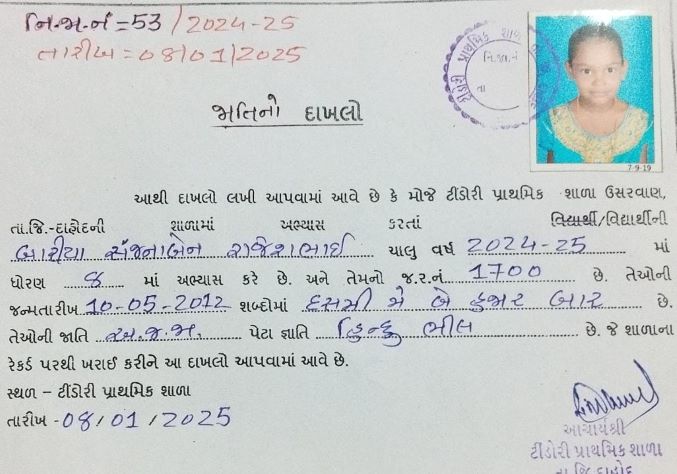 નિ.જા.નં = 53 / 2024-25
તારીખ = 08/01/2025
ટીંડોરી પ્રાથમિક શાળા
નિ.જા.નં
તા
7-9-19
જાતિનો દાખલો
આથી દાખલો લખી આપવામાં આવે છે કે મોજે ટીંડોરી પ્રાથમિક શાળા ઉસરવાણ,
તા.જિ.-દાહોદની શાળામાં અભ્યાસ કરતાં વિદ્યાર્થી/વિદ્યાર્થીની
બારીયા સંજનાબેન રાજેશભાઈ ચાલુ વર્ષ 2024-25 માં
ધોરણ ૭ માં અભ્યાસ કરે છે. અને તેમનો જ.ર.નં. 1700 છે. તેઓની
જન્મતારીખ 10-05-2012 શબ્દોમાં દસમી મે બે હજાર બાર છે.
તેઓની જાતિ અ.જ.જા. પેટા જ્ઞાતિ હિન્દુ ભીલ છે. જે શાળાના
રેકર્ડ પરથી ખરાઈ કરીને આ દાખલો આપવામાં આવે છે.
સ્થળ – ટીંડોરી પ્રાથમિક શાળા
તારીખ - 08/01/2025
આચાર્યશ્રી
ટીંડોરી પ્રાથમિક શાળા
તા.જિ.દાહોદ